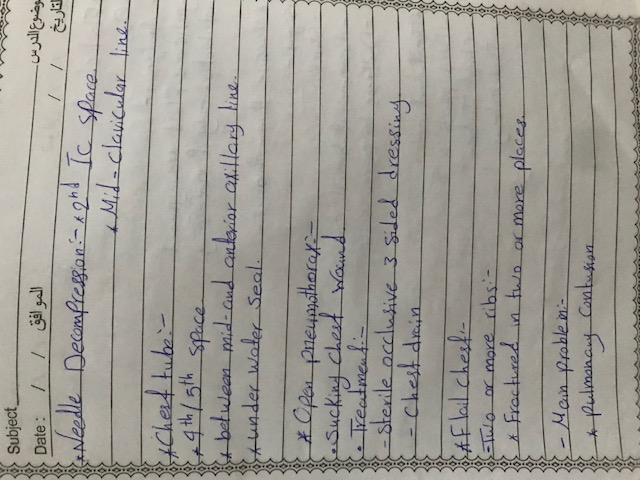 Subject
موضوع الدرس
Date: / / الموافق / / التاريخ
* Needle Decompression:- * 2nd Ic space
* Mid-clavicular line.
* Chest tube:-
* 4th/5th space
* between mid-and anterior axillary line.
* under water seal.
* Open pneumothorax:-
• Sucking chest wound
• Treatment:-
- Sterile occlusive 3 sided dressing
- Chest drain
* Flail chest:-
- Two or more ribs:-
* Fractured in two or more places.
- Main problem:-
* pulmonary contusion